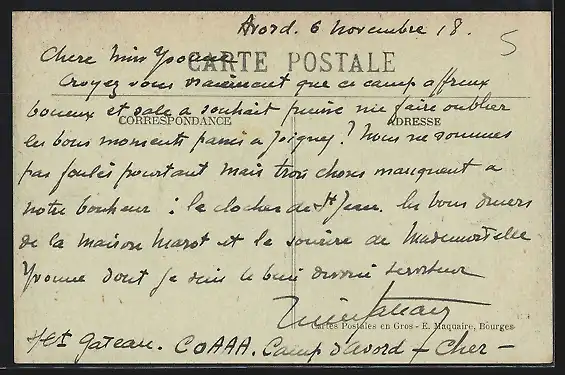 Avord. 6 novembre 18.
5
Chere Miss Yvonne
CARTE POSTALE
Croyez vous vraiment que ce camp affreux
boueux et sale a souhait puisse me faire oublier
CORRESPONDANCE
ADRESSE
les bons moments passés a Joigny? Nous ne sommes
pas foulés pourtant mais trois choses manquent a
notre bonheur : le clocher de St Jean. les bons diners
de la maison Marot et le sourire de Mademoiselle
Yvonne dont je suis le bien dévoué serviteur
Cartes Postales en Gros - E. Maquaire, Bourges
Gateau. COAAA. Camp d'avord - Cher -